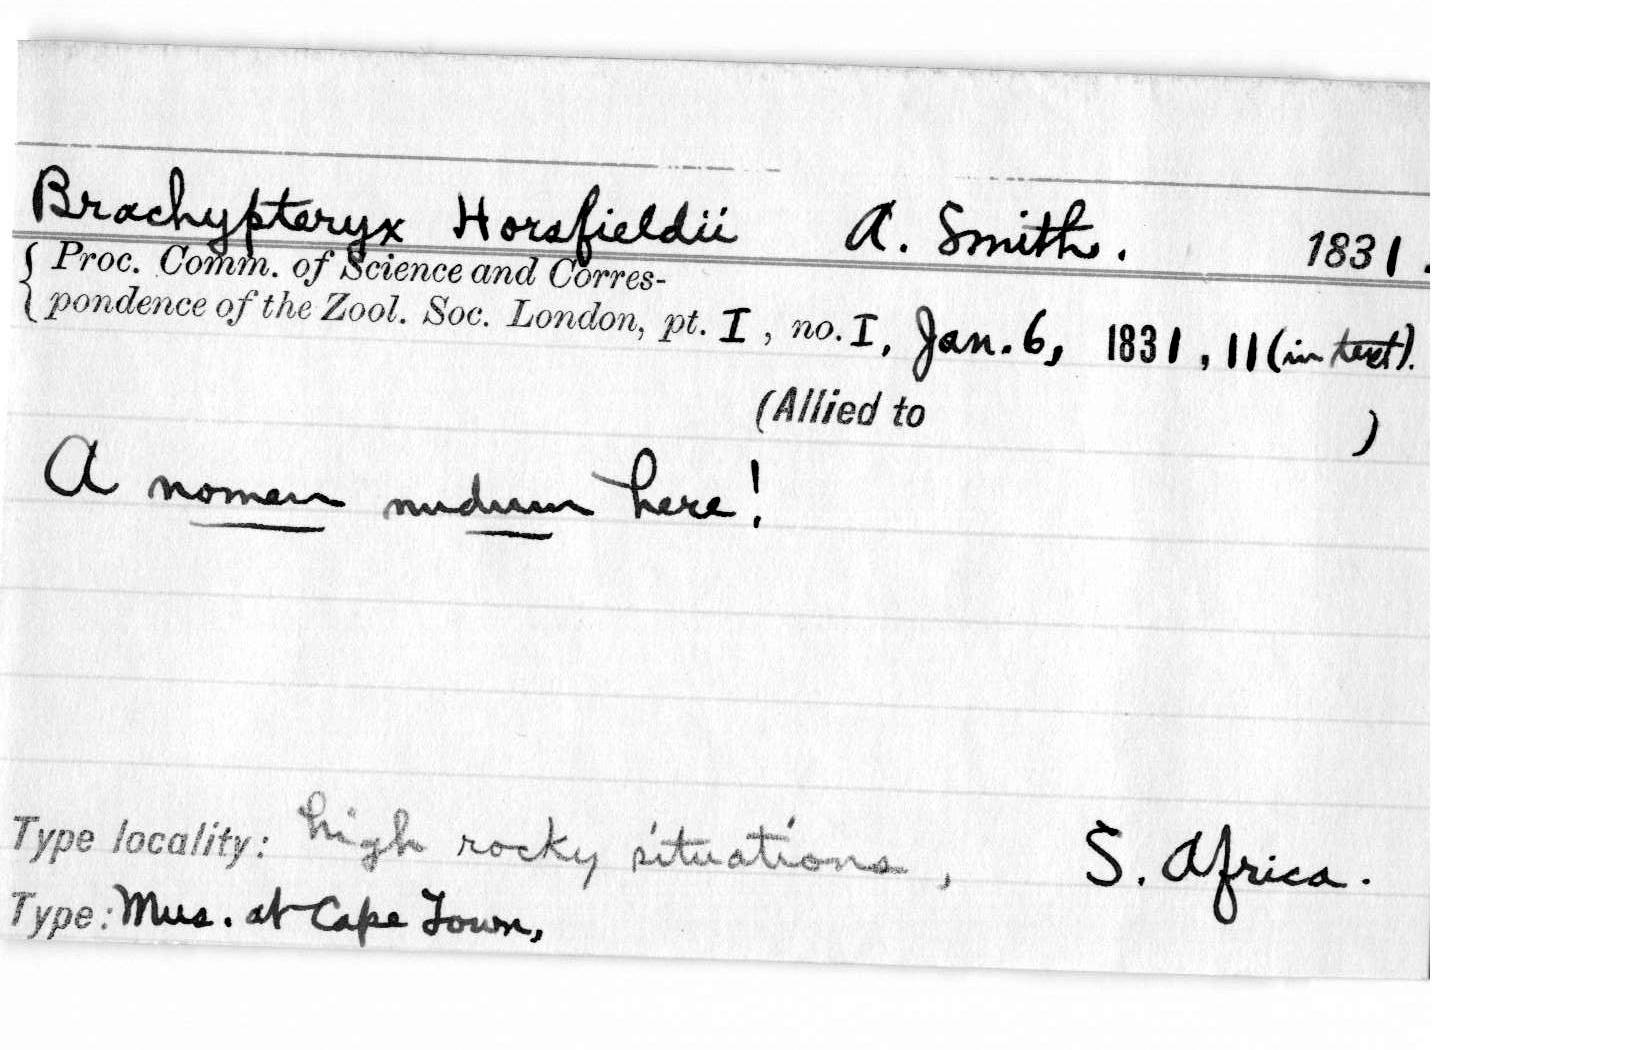 Brachypteryx Horsfieldii A. Smith. 1831.
{ Proc. Comm. of Science and Corres-
pondence of the Zool. Soc. London, pt. I, no. I, Jan. 6, 1831, 11 (in text).
(Allied to )
A nomen nudum here!
Type locality: high rocky situations, S. Africa.
Type: Mus. at Cape Town,